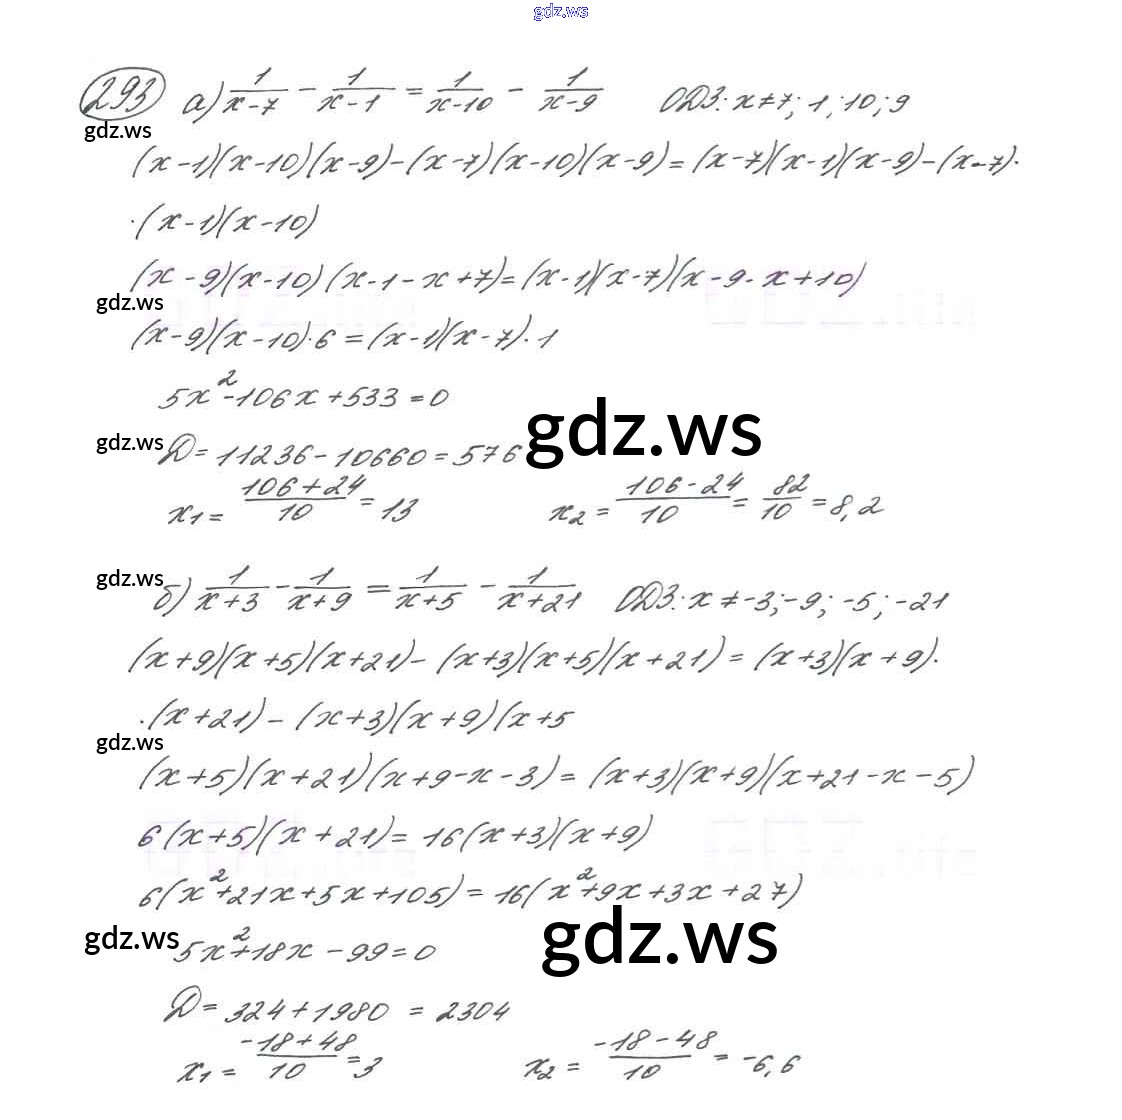 gdz.ws
293 а) 1/(x-7) - 1/(x-1) = 1/(x-10) - 1/(x-9) ОДЗ: x≠7; 1; 10; 9
gdz.ws
(x-1)(x-10)(x-9)-(x-7)(x-10)(x-9)=(x-7)(x-1)(x-9)-(x-7)·
·(x-1)(x-10)
(x-9)(x-10)(x-1-x+7)=(x-1)(x-7)(x-9-x+10)
gdz.ws
(x-9)(x-10)·6=(x-1)(x-7)·1
5x²-106x+533=0
gdz.ws
gdz.ws
Д=11236-10660=576
x₁= (106+24)/10 = 13 x₂= (106-24)/10 = 82/10 = 8,2
gdz.ws
б) 1/(x+3) - 1/(x+9) = 1/(x+5) - 1/(x+21) ОДЗ: x≠-3; -9; -5; -21
(x+9)(x+5)(x+21)-(x+3)(x+5)(x+21)=(x+3)(x+9)·
·(x+21)-(x+3)(x+9)(x+5
gdz.ws
(x+5)(x+21)(x+9-x-3)=(x+3)(x+9)(x+21-x-5)
6(x+5)(x+21)=16(x+3)(x+9)
6(x²+21x+5x+105)=16(x²+9x+3x+27)
gdz.ws
gdz.ws
5x²+18x-99=0
Д=324+1980=2304
x₁= (-18+48)/10 =3 x₂= (-18-48)/10 = -6,6